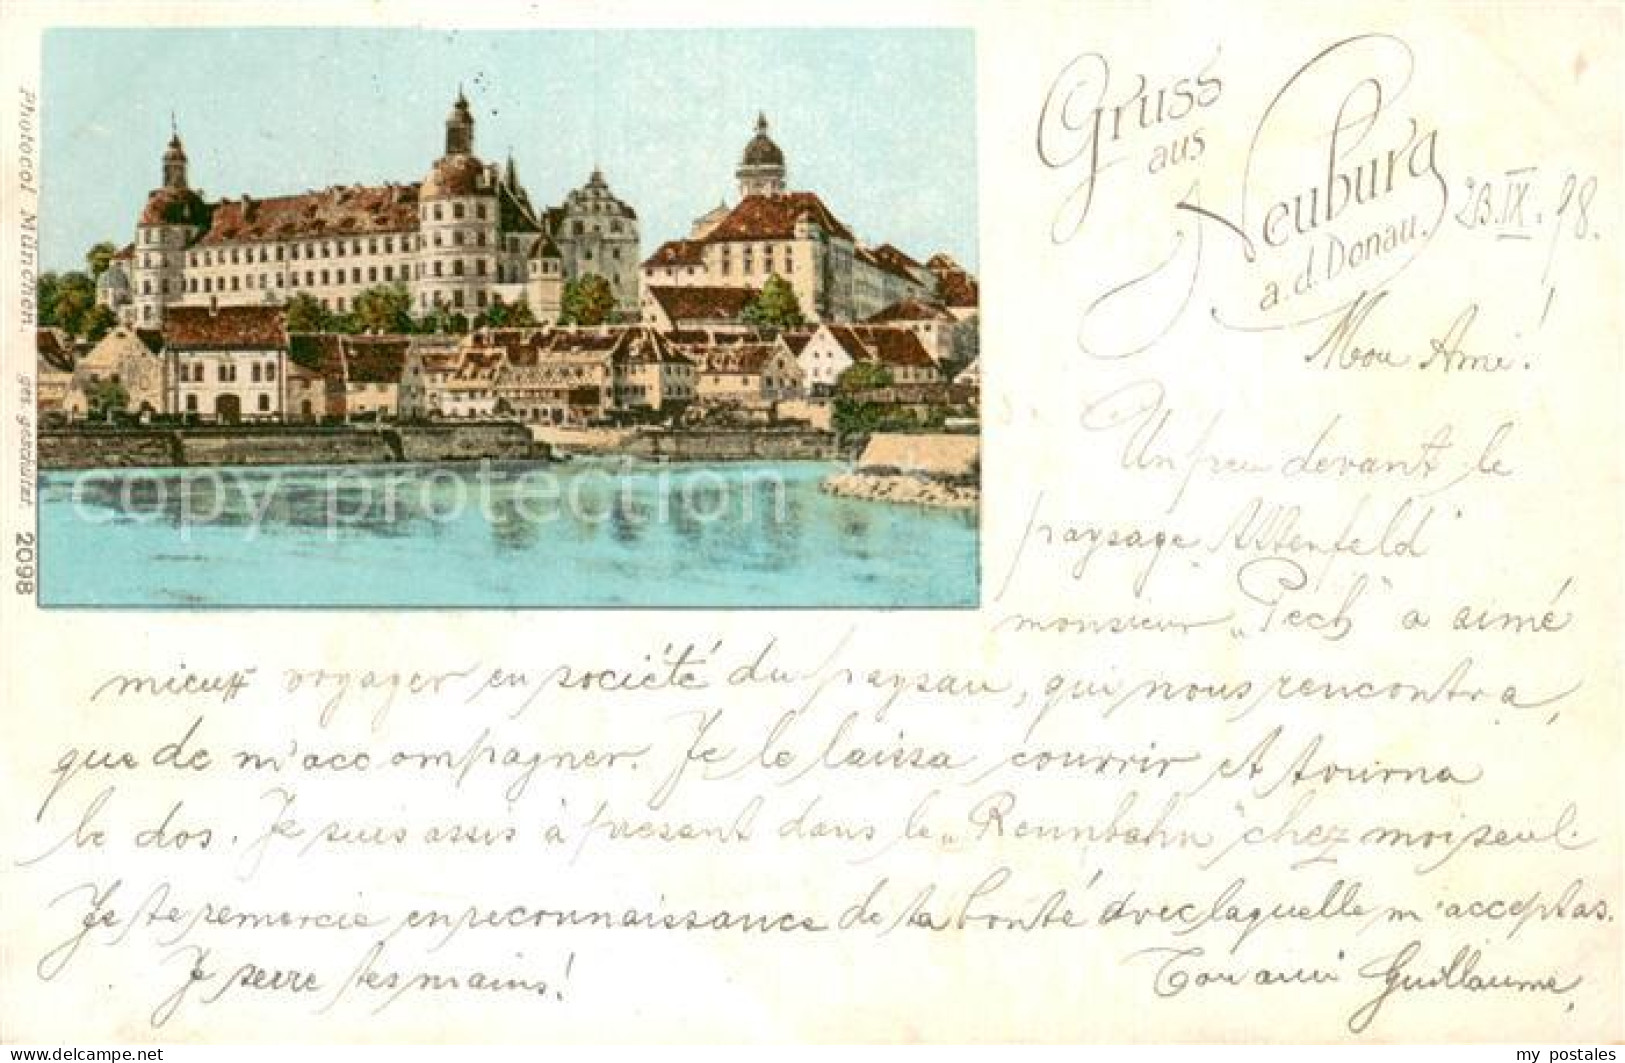 Gruss
aus
Neuburg
a. d. Donau.
23. IX. 98.
Photocol München. ges. geschützt. 2098
copy protection
Mon Ami!
Un peu devant le
paysage „Attenfeld"
monsieur „Pech" a aimé
mieux voyager en société du paysan, qui nous rencontra,
que de m'accompagner. Je le laissa courrir et tourna
le dos. Je suis assis à présent dans le „Rennbahn" chez moi seul.
Je te remercie en reconnaissance de ta bonté avec laquelle m'acceptas.
Je serre tes mains!
Ton ami Guillaume.
www.delcampe.net
my_postales